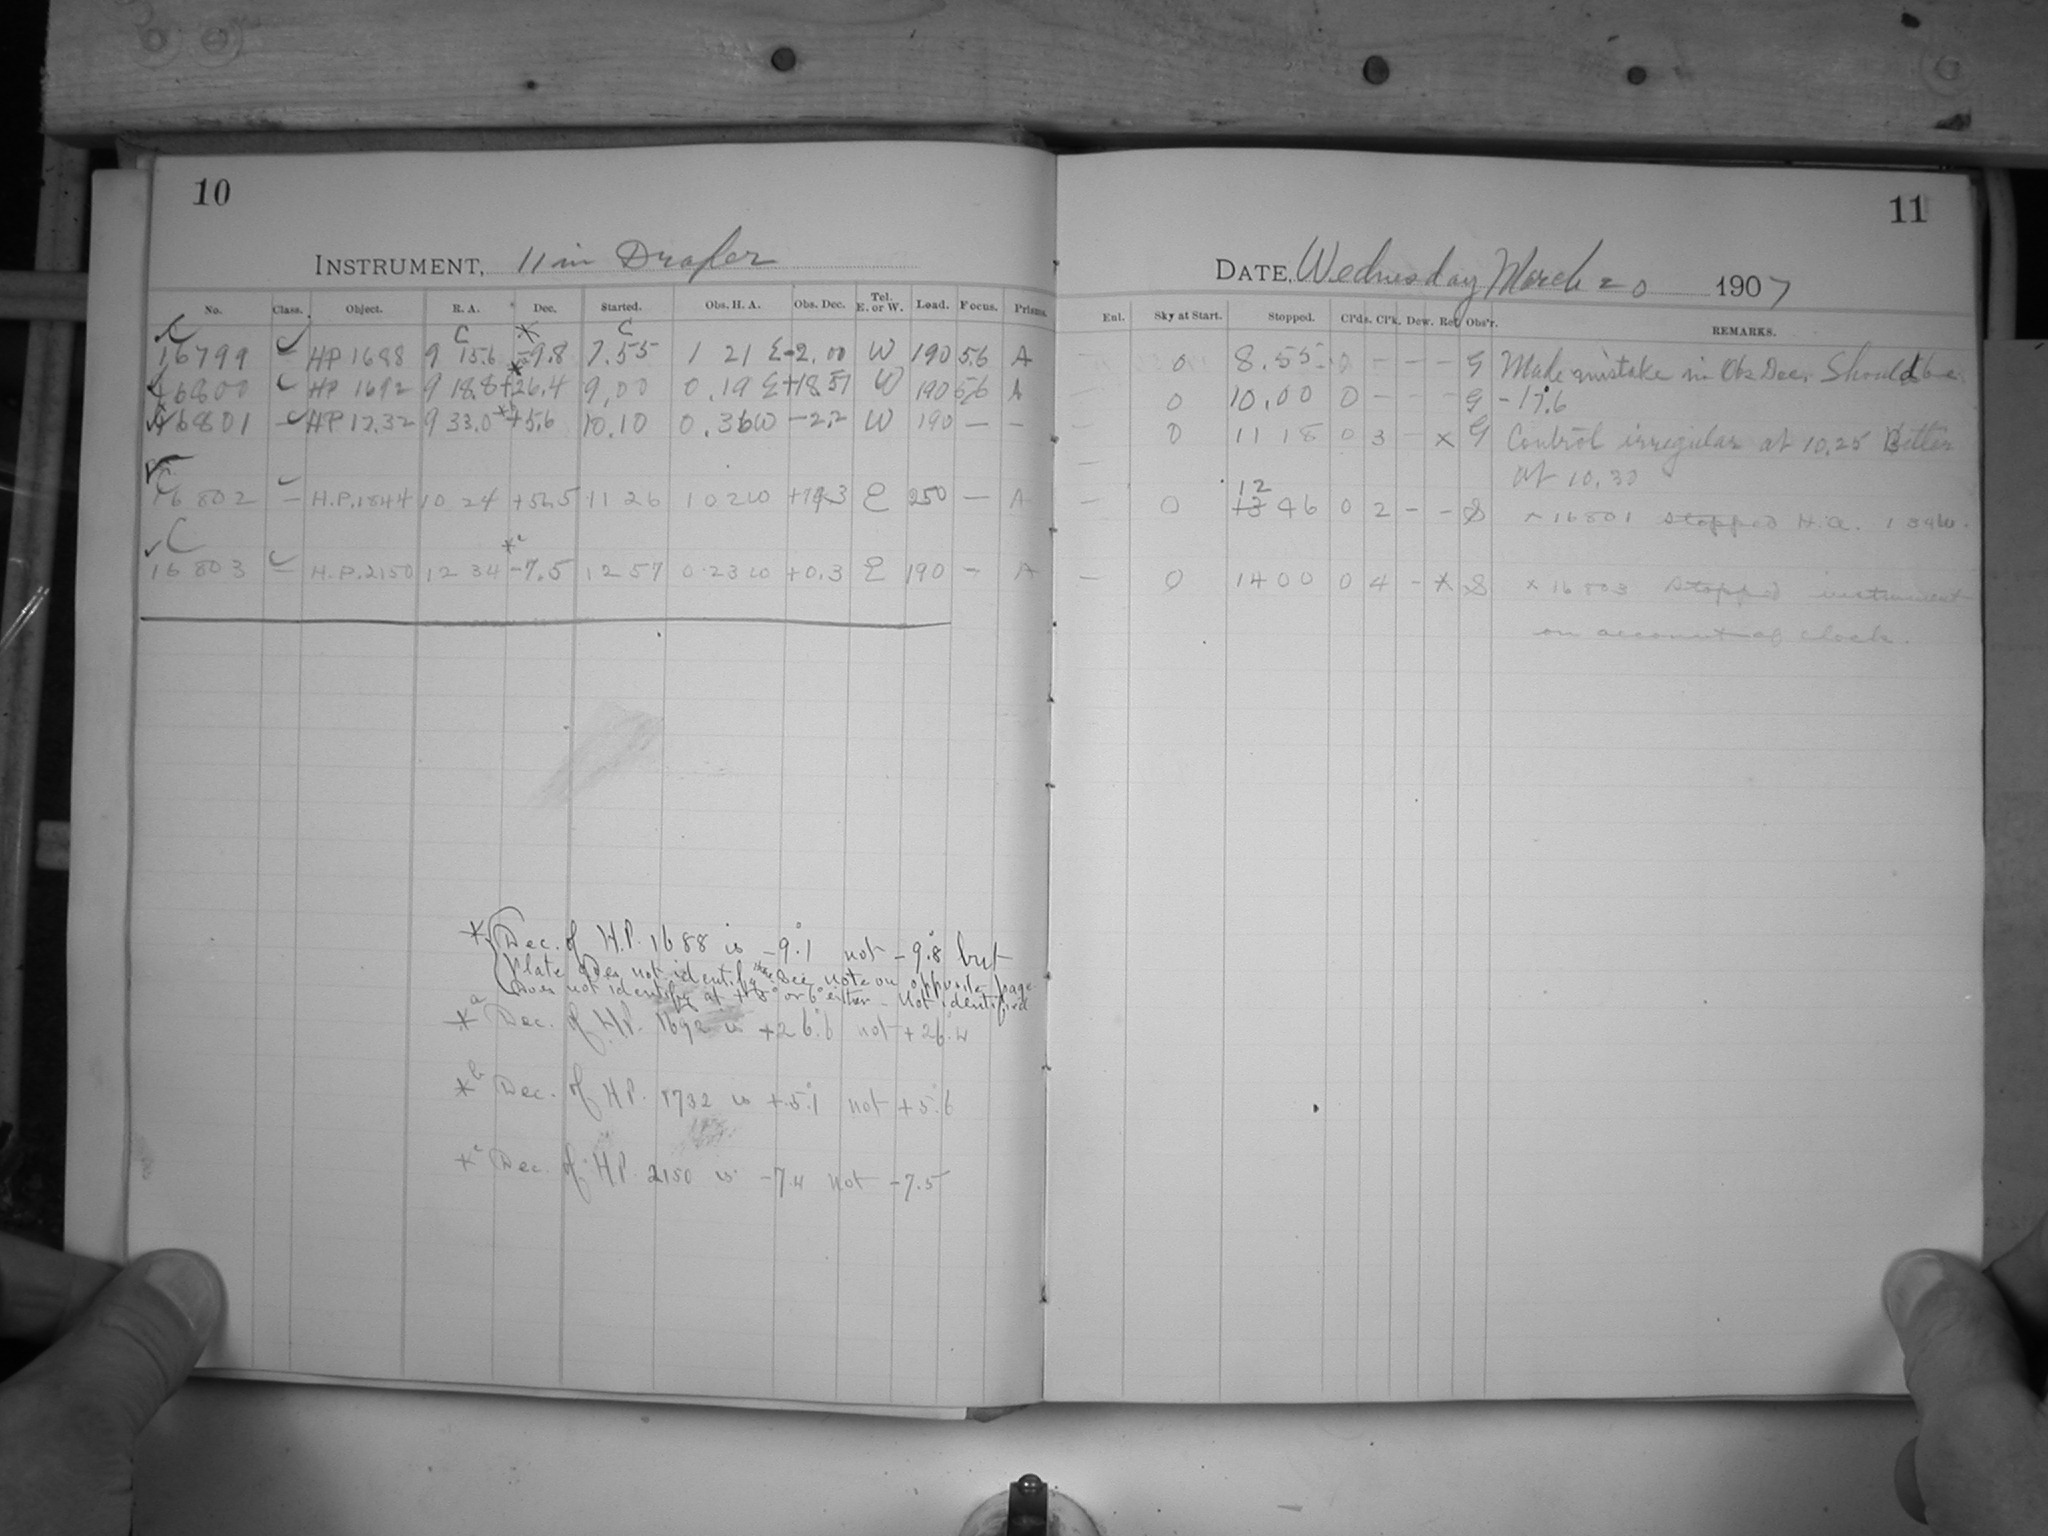 10
INSTRUMENT, 11 in Draper
No. Class. Object. R. A. Dec. Started. Obs. H. A. Obs. Dec. Tel. E. or W. Load. Focus. Prisms.
C C * C
16799 – HP 1688 9 15.6 -9.8 7.55 1 21 E -2.00 W 190 56 A
16800 HP 1692 9 18.8 +26.4 9,00 0.19 E +18.57 W 190 56 A
16801 – HP 1732 9 33.0 *b +5.6 10.10 0.36W -2.2 W 190 – –
C
16802 – H.P.1844 10 24 +56.5 11 26 1 02W E 250 – A
C
*c
16803 – H.P.2150 12 34 -7.5 12 57 0.23W +0.3 E 190 – A
* Dec. of H.P. 1688 is -9°.1 not -9°.8 but
Plate does not identify there see note on opposite page
Does not identify at +18° or 6° either - Not identified
*a Dec. of HP. 1692 is +26°.6 not +26.4
*b Dec. of HP. 1732 is +5°.1 not +5°.6
*c Dec. of HP. 2150 is -7.4 not -7.5
11
DATE, Wednesday March 20 1907
Enl. Sky at Start. Stopped. Cl'ds. Cl'k. Dew. Ref. Obs'r. REMARKS.
– 0 8.55 0 – – – G Made mistake in Obs Dec. Should be
– 0 10.00 0 – – – G -17°.6
0 11 18 0 3 – x G Control irregular at 10.25 Better
– at 10.30
12
– 0 13 46 0 2 – – S x 16801 stopped H.a. 1 34W.
– 0 14 00 0 4 – * S x 16803 Stopped instrument
on account of clock.